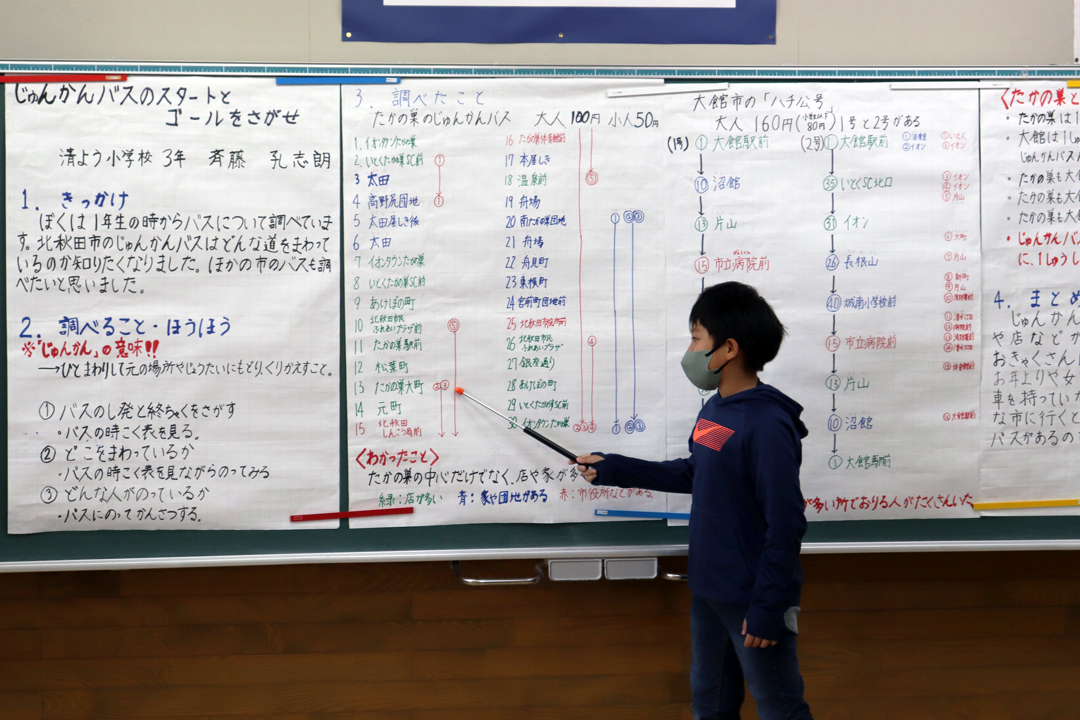 じゅんかんバスのスタートと
ゴールをさがせ
清よう小学校 3年 斉藤 孔志朗
1. きっかけ
ぼくは1年生の時からバスについて調べていま
す。北秋田市のじゅんかんバスはどんな道をまわって
いるのか知りたくなりました。ほかの市のバスも調
べたいと思いました。
2. 調べること・ほうほう
※「じゅんかん」の意味!!
→ひとまわりして元の場所やじょうたいにもどり、くりかえすこと。
① バスのし発と終ちゃくをさがす
・バスの時こく表を見る。
② どこをまわっているか
・バスの時こく表を見ながらのってみる
③ どんな人がのっているか
・バスにのってかんさつする。
3. 調べたこと
たかの巣のじゅんかんバス 大人 100円 小人 50円
1. イオンタウンたかの巣
2. いとくたかの巣SC前
3 太田
4 高野尻団地
5 太田屋しき後
6 太田
7 イオンタウンたかの巣
8 いとくたかの巣SC前
9 あけぼの町
10 北秋田市民ふれあいプラザ前
11 たかの巣駅前
12 松葉町
13 たかの巣大町
14 元町
15 北秋田しんこう局前
16 たかの巣体育館前
17 本屋しき
18 温泉前
19 舟場
20 南たかの巣団地
21 舟場
22 舟見町
23 東横町
24 宮前町団地前
25 北秋田市役所前
26 北秋田市民ふれあいプラザ前
27 銀座通り
28 あけぼの町
29 いとくたかの巣SC前
30 イオンタウンたかの巣
<わかったこと>
たかの巣の中心だけでなく、店や家が多
緑:店が多い 青:家や団地がある 赤:市役所などがある。
大館市の「ハチ公号」
大人 160円(小学生以下80円)1号と2号がある
(1号) ① 大館駅前
⑩ 沼館
⑬ 片山
⑮ 市立病院前
(2号) ① 大館駅前
㉟ いとくSC北口
㉛ イオン
㉖ 長根山
㊵ 城南小学校前
⑮ 市立病院前
⑬ 片山
⑩ 沼館
① 大館駅前
が多い所でおりる人がたくさんいた
<たかの巣と
・たかの巣は1
・大館は1
じゅんかんバス
・たかの巣も大
・たかの巣も大
・たかの巣も大
・じゅんかんバ
に、1しゅうし
4. まとめ
じゅんかん
や店などか
おきゃくさん
お年よりや女
車を持ってい
な市に行くと
バスがあるの